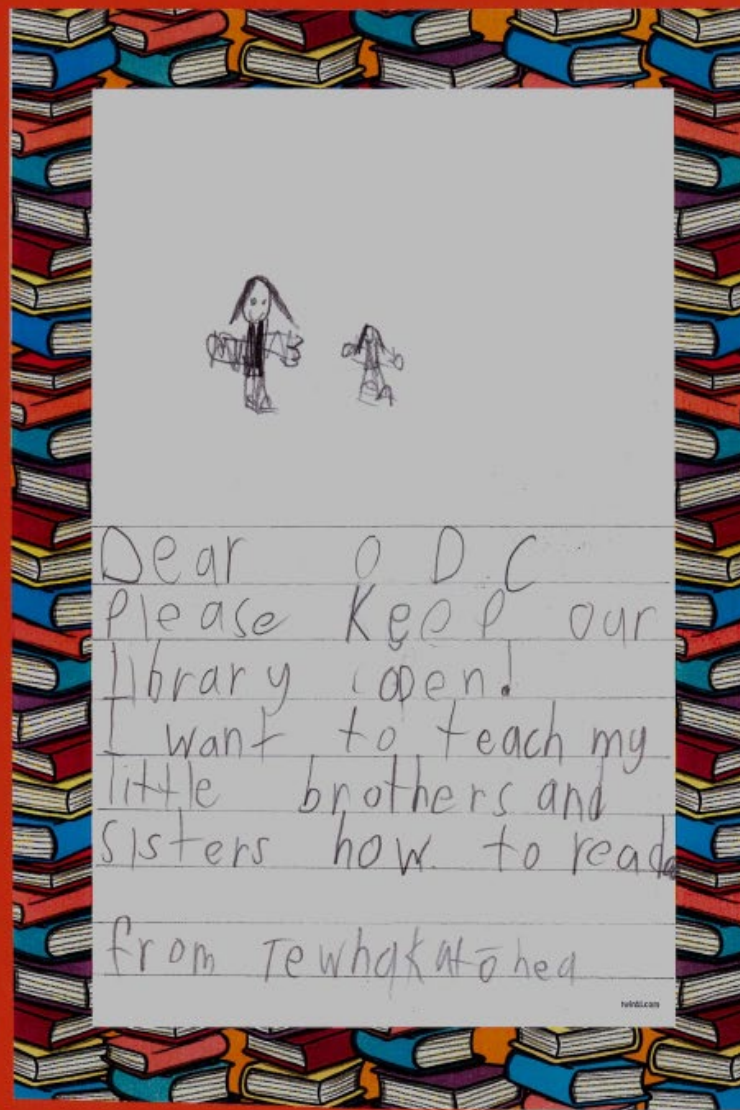 Dear O D C
Please Keep our
library open!
I want to teach my
little brothers and
sisters how to read.
from Tewhakatōhea
twinkl.com